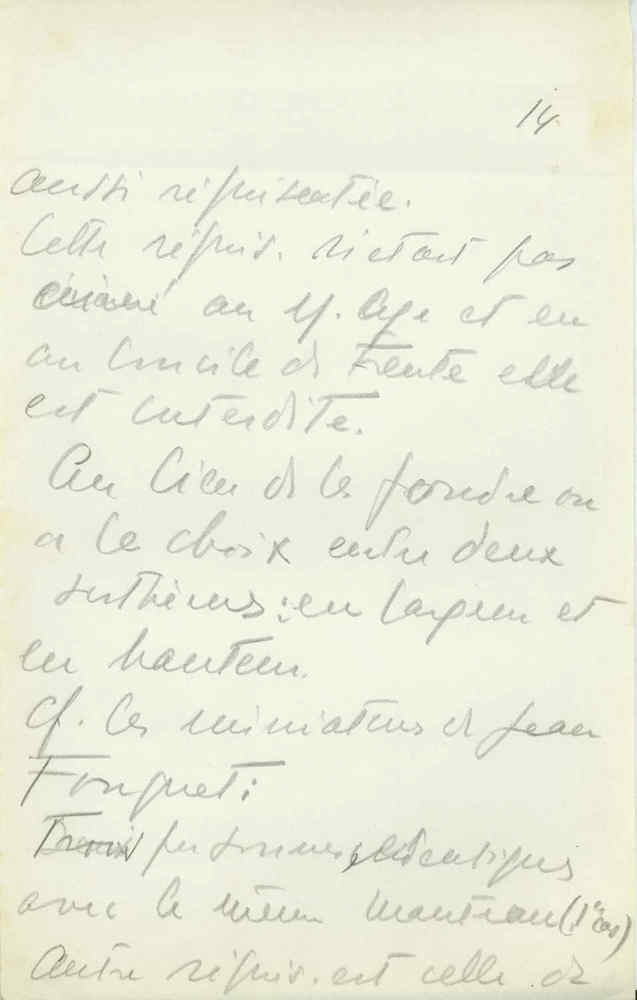 14.
aussi représentée.
Cette représ. n'etait pas
au M. Age et en
au Concile de Trente elle
est interdite.
Au lieu de les fondre on
a le choix entre deux
systèmes : en largeur et
en hauteur.
Cf. les miniatures de Jean
Fouquet :
Trois personnes identiques
avec le même manteau (1er cas)
Autre représ. est celle de